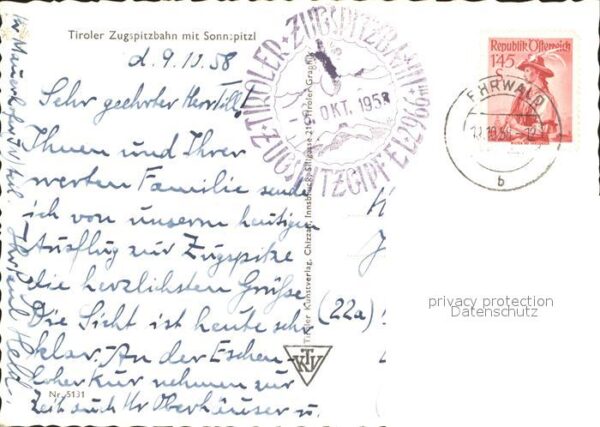 Tiroler Zugspitzbahn mit Sonnspitzl
d. 9.10.58
Sehr geehrter Herr Till!
Ihnen und Ihrer
werten Familie sende
ich von unserm heutigen
Ausflug zur Zugspitze
die herzlichsten Grüße
Die Sicht ist heute sehr
klar. An der Eschen-
loher kur nehmen zur
Zeit auch Hr Oberhäuser u.
Nr. 5131
Tiroler Kunstverlag, Chizzali, Innsbruck
TIROLER ZUGSPITZBAHN
ZUGSPITZGIPFEL 2966 m
OKT. 1958
KTV
Republik Österreich
145
S
EHRWALD
b
(22a)
privacy protection
Datenschutz